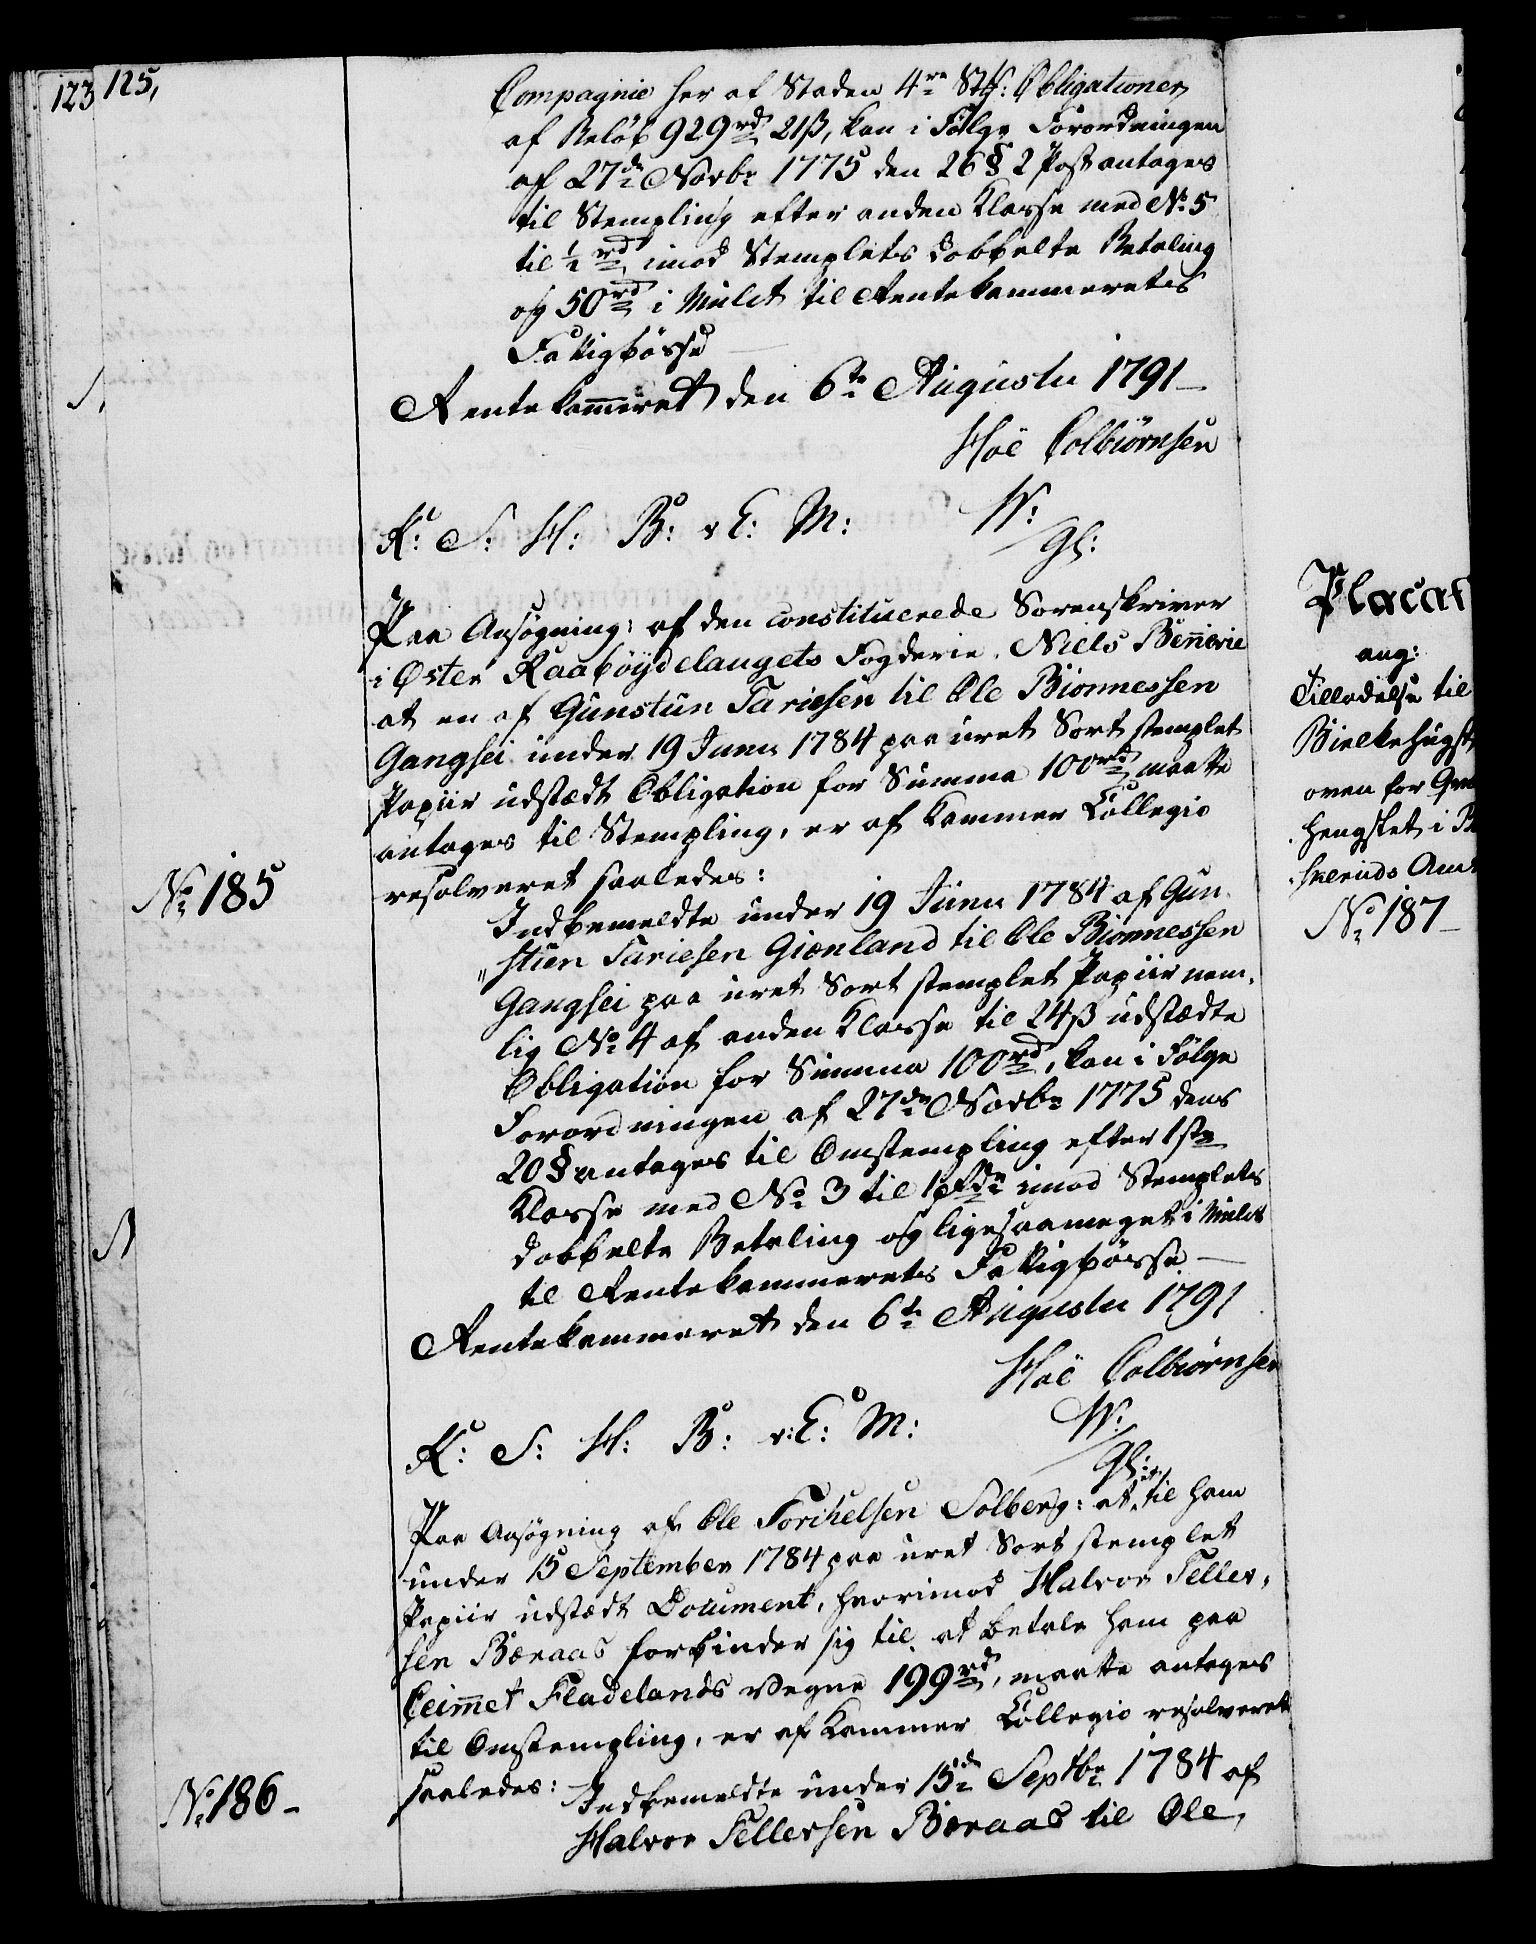 123 125,
Compagnie her af Staden 4re Stk: Obligationer
af Beløb 929rd 21ß, kan i Følge Forordningen
af 27de Novbr 1775 den 26 § 2 Post antages
til Stempling efter anden Klasse med No 5
til ½ rd imod Stemplets dobbelte Betaling
og 50rd i Mulct til Rentekammerets
Fattigbøsse
Rentekammeret den 6te Augustii 1791
Hoë Colbiørnsen
K: S: H: B: v E: M: W:
Gl:
Paa Ansøgning af den constituerede Sorenskriver
i Øster Raabøygdelaugets Fogderie, Niels Bennerie
at en af Gunstun Tariesen til Ole Bionnessen
Gangsei under 19 Junii 1784 paa uret Sort stemplet
Papiir udstædt Obligation for Summa 100rd maatte
antages til Stempling, er af Kammer Collegio
resolveret saaledes:
No 185
Indbemeldte under 19 Junii 1784 af Gun-
„stuen Tariesen Gionland til Ole Bionnessen
Gangsei paa uret Sort stemplet Papiir nem-
lig No 4 af anden Klasse til 24ß udstædte
Obligation for Summa 100rd, kan i Følge
Forordningen af 27de Novbr 1775 dens
20 § antages til Omstempling efter 1ste
Klasse med No 3 til 1 imod Stemplets
dobbelte Betaling og ligesaameget i Mulct
til Rentekammerets Fattigbøsse
Rentekammeret den 6te Augustii 1791
Hoë Colbiørnsen
K: S: H: B: v: E: M: W:
Gl:
Paa Ansøgning af Ole Torichelsen Solberg: at et til ham
under 15 September 1784 paa uret Sort stemplet
Papiir udstædt Document, hvorimod Halvor Teller-
sen Boraas forbinder sig til at betale ham paa
Fladelands Vegne 199rd, maatte antages
til Omstempling, er af Kammer Collegio resolveret
saaledes:
No 186
Indbemeldte under 15de Septbr 1784 af
Halvor Tellersen Boraas til Ole
Placat
ang:
Tilladelse til
Bielkehugst
oven for
hengslet i
Amt
No 187